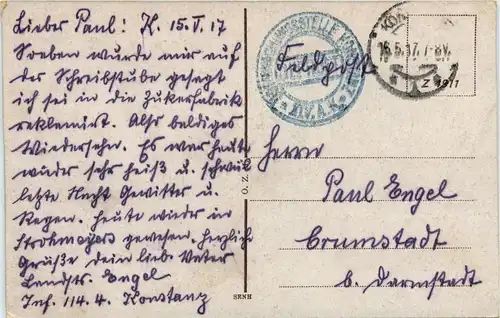 Lieber Paul! K. 15.V.17
Soeben wurde mir auf
der Schreibstube gesagt
ich sei in die Zukerfabrik
reklamirt. Also baldiges
Wiedersehn. Es war heute
wieder sehr heiß u. schwül
letzte Nacht Gewitter u.
Regen. heute wieder in
gewesen. herzliche
Grüße dein lieb. Vater
Landst. Engel
Inf. 114. 4. Konstanz
Feldpost
16.5.17. 7-8V.
Z 4911
* XIV. A.K. *
Herrn
Paul Engel
Crumstadt
b. Darmstadt
O. Z.